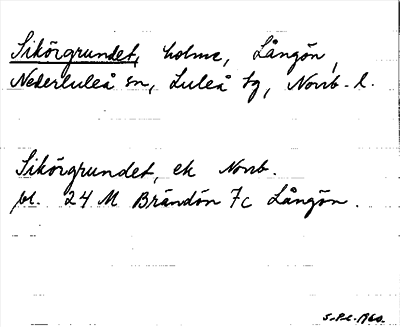 Sikörgrundet, holme, Långön,
Nederluleå sn, Luleå tg, Norrb. l.
Sikörgrundet, ek Norrb.
bl. 24 M Brändön 7c Långön.
S.P.C. 1960.